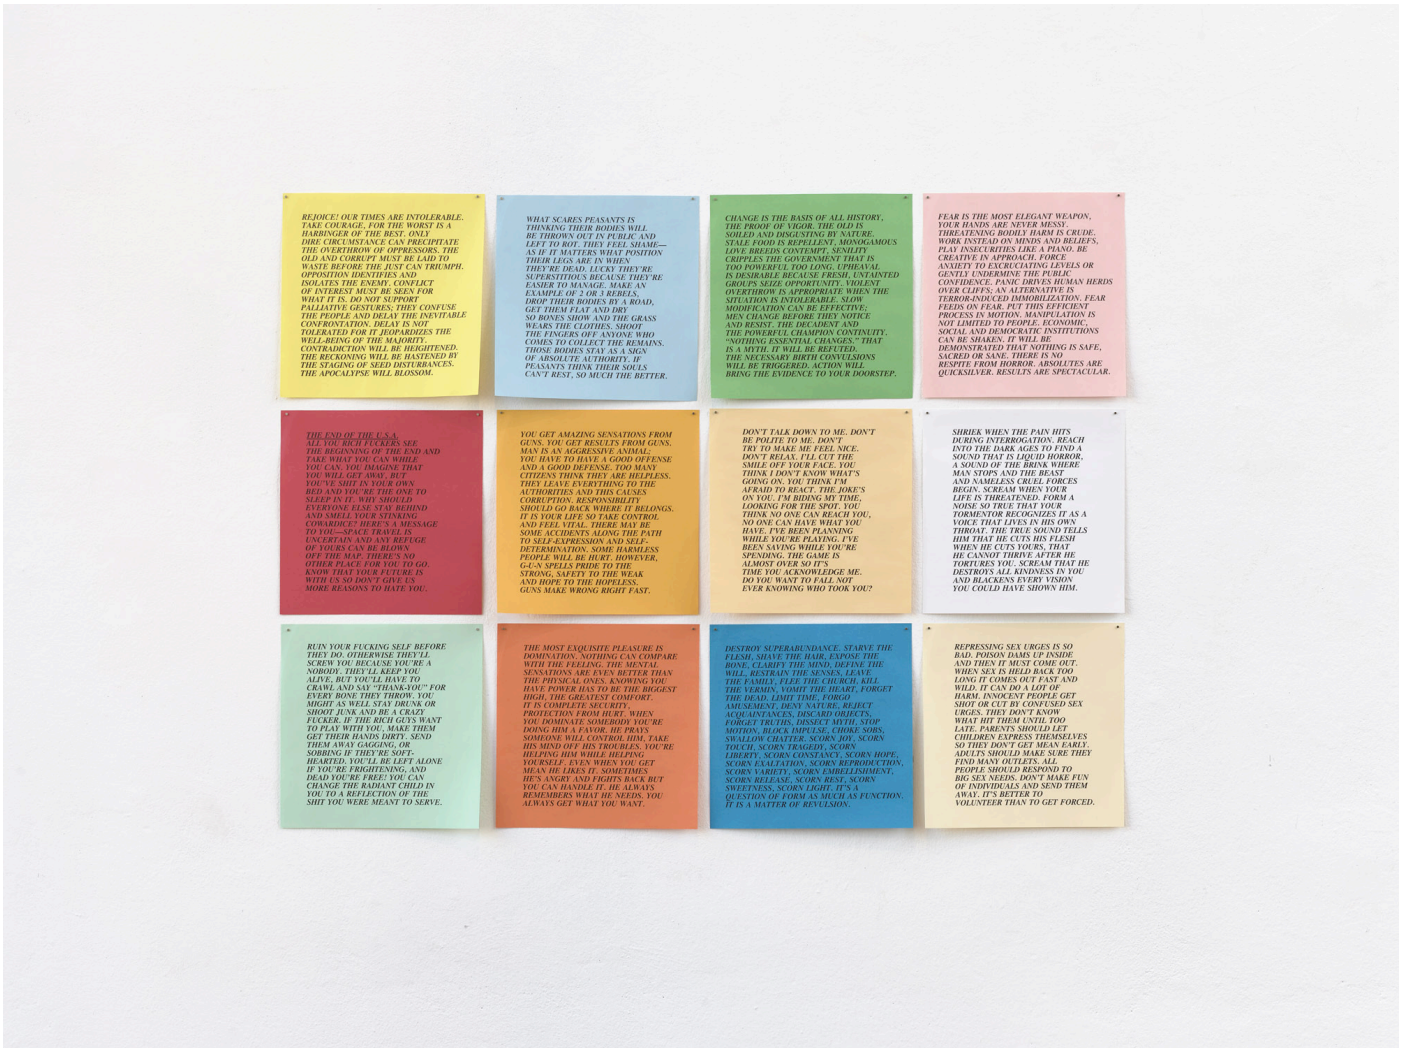 REJOICE! OUR TIMES ARE INTOLERABLE.
TAKE COURAGE, FOR THE WORST IS A
HARBINGER OF THE BEST. ONLY
DIRE CIRCUMSTANCE CAN PRECIPITATE
THE OVERTHROW OF OPPRESSORS. THE
OLD AND CORRUPT MUST BE LAID TO
WASTE BEFORE THE JUST CAN TRIUMPH.
OPPOSITION IDENTIFIES AND
ISOLATES THE ENEMY. CONFLICT
OF INTEREST MUST BE SEEN FOR
WHAT IT IS. DO NOT SUPPORT
PALLIATIVE GESTURES; THEY CONFUSE
THE PEOPLE AND DELAY THE INEVITABLE
CONFRONTATION. DELAY IS NOT
TOLERATED FOR IT JEOPARDIZES THE
WELL-BEING OF THE MAJORITY.
CONTRADICTION WILL BE HEIGHTENED.
THE RECKONING WILL BE HASTENED BY
THE STAGING OF SEED DISTURBANCES.
THE APOCALYPSE WILL BLOSSOM.
WHAT SCARES PEASANTS IS
THINKING THEIR BODIES WILL
BE THROWN OUT IN PUBLIC AND
LEFT TO ROT. THEY FEEL SHAME—
AS IF IT MATTERS WHAT POSITION
THEIR LEGS ARE IN WHEN
THEY'RE DEAD. LUCKY THEY'RE
SUPERSTITIOUS BECAUSE THEY'RE
EASIER TO MANAGE. MAKE AN
EXAMPLE OF 2 OR 3 REBELS,
DROP THEIR BODIES BY A ROAD,
GET THEM FLAT AND DRY
SO BONES SHOW AND THE GRASS
WEARS THE CLOTHES. SHOOT
THE FINGERS OFF ANYONE WHO
COMES TO COLLECT THE REMAINS.
THOSE BODIES STAY AS A SIGN
OF ABSOLUTE AUTHORITY. IF
PEASANTS THINK THEIR SOULS
CAN'T REST, SO MUCH THE BETTER.
CHANGE IS THE BASIS OF ALL HISTORY,
THE PROOF OF VIGOR. THE OLD IS
SOILED AND DISGUSTING BY NATURE.
STALE FOOD IS REPELLENT, MONOGAMOUS
LOVE BREEDS CONTEMPT, SENILITY
CRIPPLES THE GOVERNMENT THAT IS
TOO POWERFUL TOO LONG. UPHEAVAL
IS DESIRABLE BECAUSE FRESH, UNTAINTED
GROUPS SEIZE OPPORTUNITY. VIOLENT
OVERTHROW IS APPROPRIATE WHEN THE
SITUATION IS INTOLERABLE. SLOW
MODIFICATION CAN BE EFFECTIVE;
MEN CHANGE BEFORE THEY NOTICE
AND RESIST. THE DECADENT AND
THE POWERFUL CHAMPION CONTINUITY.
"NOTHING ESSENTIAL CHANGES." THAT
IS A MYTH. IT WILL BE REFUTED.
THE NECESSARY BIRTH CONVULSIONS
WILL BE TRIGGERED. ACTION WILL
BRING THE EVIDENCE TO YOUR DOORSTEP.
FEAR IS THE MOST ELEGANT WEAPON,
YOUR HANDS ARE NEVER MESSY.
THREATENING BODILY HARM IS CRUDE.
WORK INSTEAD ON MINDS AND BELIEFS,
PLAY INSECURITIES LIKE A PIANO. BE
CREATIVE IN APPROACH. FORCE
ANXIETY TO EXCRUCIATING LEVELS OR
GENTLY UNDERMINE THE PUBLIC
CONFIDENCE. PANIC DRIVES HUMAN HERDS
OVER CLIFFS; AN ALTERNATIVE IS
TERROR-INDUCED IMMOBILIZATION. FEAR
FEEDS ON FEAR. PUT THIS EFFICIENT
PROCESS IN MOTION. MANIPULATION IS
NOT LIMITED TO PEOPLE. ECONOMIC,
SOCIAL AND DEMOCRATIC INSTITUTIONS
CAN BE SHAKEN. IT WILL BE
DEMONSTRATED THAT NOTHING IS SAFE,
SACRED OR SANE. THERE IS NO
RESPITE FROM HORROR. ABSOLUTES ARE
QUICKSILVER. RESULTS ARE SPECTACULAR.
THE END OF THE U.S.A.
ALL YOU RICH FUCKERS SEE
THE BEGINNING OF THE END AND
TAKE WHAT YOU CAN WHILE
YOU CAN. YOU IMAGINE THAT
YOU WILL GET AWAY, BUT
YOU'VE SHIT IN YOUR OWN
BED AND YOU'RE THE ONE TO
SLEEP IN IT. WHY SHOULD
EVERYONE ELSE STAY BEHIND
AND SMELL YOUR STINKING
COWARDICE? HERE'S A MESSAGE
TO YOU—SPACE TRAVEL IS
UNCERTAIN AND ANY REFUGE
OF YOURS CAN BE BLOWN
OFF THE MAP. THERE'S NO
OTHER PLACE FOR YOU TO GO.
KNOW THAT YOUR FUTURE IS
WITH US SO DON'T GIVE US
MORE REASONS TO HATE YOU.
YOU GET AMAZING SENSATIONS FROM
GUNS. YOU GET RESULTS FROM GUNS.
MAN IS AN AGGRESSIVE ANIMAL;
YOU HAVE TO HAVE A GOOD OFFENSE
AND A GOOD DEFENSE. TOO MANY
CITIZENS THINK THEY ARE HELPLESS.
THEY LEAVE EVERYTHING TO THE
AUTHORITIES AND THIS CAUSES
CORRUPTION. RESPONSIBILITY
SHOULD GO BACK WHERE IT BELONGS.
IT IS YOUR LIFE SO TAKE CONTROL
AND FEEL VITAL. THERE MAY BE
SOME ACCIDENTS ALONG THE PATH
TO SELF-EXPRESSION AND SELF-
DETERMINATION. SOME HARMLESS
PEOPLE WILL BE HURT. HOWEVER,
G-U-N SPELLS PRIDE TO THE
STRONG, SAFETY TO THE WEAK
AND HOPE TO THE HOPELESS.
GUNS MAKE WRONG RIGHT FAST.
DON'T TALK DOWN TO ME. DON'T
BE POLITE TO ME. DON'T
TRY TO MAKE ME FEEL NICE.
DON'T RELAX. I'LL CUT THE
SMILE OFF YOUR FACE. YOU
THINK I DON'T KNOW WHAT'S
GOING ON. YOU THINK I'M
AFRAID TO REACT. THE JOKE'S
ON YOU. I'M BIDING MY TIME,
LOOKING FOR THE SPOT. YOU
THINK NO ONE CAN REACH YOU,
NO ONE CAN HAVE WHAT YOU
HAVE. I'VE BEEN PLANNING
WHILE YOU'RE PLAYING. I'VE
BEEN SAVING WHILE YOU'RE
SPENDING. THE GAME IS
ALMOST OVER SO IT'S
TIME YOU ACKNOWLEDGE ME.
DO YOU WANT TO FALL NOT
EVER KNOWING WHO TOOK YOU?
SHRIEK WHEN THE PAIN HITS
DURING INTERROGATION. REACH
INTO THE DARK AGES TO FIND A
SOUND THAT IS LIQUID HORROR,
A SOUND OF THE BRINK WHERE
MAN STOPS AND THE BEAST
AND NAMELESS CRUEL FORCES
BEGIN. SCREAM WHEN YOUR
LIFE IS THREATENED. FORM A
NOISE SO TRUE THAT YOUR
TORMENTOR RECOGNIZES IT AS A
VOICE THAT LIVES IN HIS OWN
THROAT. THE TRUE SOUND TELLS
HIM THAT HE CUTS HIS FLESH
WHEN HE CUTS YOURS, THAT
HE CANNOT THRIVE AFTER HE
TORTURES YOU. SCREAM THAT HE
DESTROYS ALL KINDNESS IN YOU
AND BLACKENS EVERY VISION
YOU COULD HAVE SHOWN HIM.
RUIN YOUR FUCKING SELF BEFORE
THEY DO. OTHERWISE THEY'LL
SCREW YOU BECAUSE YOU'RE A
NOBODY. THEY'LL KEEP YOU
ALIVE, BUT YOU'LL HAVE TO
CRAWL AND SAY "THANK-YOU" FOR
EVERY BONE THEY THROW. YOU
MIGHT AS WELL STAY DRUNK OR
SHOOT JUNK AND BE A CRAZY
FUCKER. IF THE RICH GUYS WANT
TO PLAY WITH YOU, MAKE THEM
GET THEIR HANDS DIRTY. SEND
THEM AWAY GAGGING, OR
SOBBING IF THEY'RE SOFT-
HEARTED. YOU'LL BE LEFT ALONE
IF YOU'RE FRIGHTENING, AND
DEAD YOU'RE FREE! YOU CAN
CHANGE THE RADIANT CHILD IN
YOU TO A REFLECTION OF THE
SHIT YOU WERE MEANT TO SERVE.
THE MOST EXQUISITE PLEASURE IS
DOMINATION. NOTHING CAN COMPARE
WITH THE FEELING. THE MENTAL
SENSATIONS ARE EVEN BETTER THAN
THE PHYSICAL ONES. KNOWING YOU
HAVE POWER HAS TO BE THE BIGGEST
HIGH, THE GREATEST COMFORT.
IT IS COMPLETE SECURITY,
PROTECTION FROM HURT. WHEN
YOU DOMINATE SOMEBODY YOU'RE
DOING HIM A FAVOR. HE PRAYS
SOMEONE WILL CONTROL HIM, TAKE
HIS MIND OFF HIS TROUBLES. YOU'RE
HELPING HIM WHILE HELPING
YOURSELF. EVEN WHEN YOU GET
MEAN HE LIKES IT. SOMETIMES
HE'S ANGRY AND FIGHTS BACK BUT
YOU CAN HANDLE IT. HE ALWAYS
REMEMBERS WHAT HE NEEDS. YOU
ALWAYS GET WHAT YOU WANT.
DESTROY SUPERABUNDANCE. STARVE THE
FLESH, SHAVE THE HAIR, EXPOSE THE
BONE, CLARIFY THE MIND, DEFINE THE
WILL, RESTRAIN THE SENSES, LEAVE
THE FAMILY, FLEE THE CHURCH, KILL
THE VERMIN, VOMIT THE HEART, FORGET
THE DEAD. LIMIT TIME, FORGO
AMUSEMENT, DENY NATURE, REJECT
ACQUAINTANCES, DISCARD OBJECTS,
FORGET TRUTHS, DISSECT MYTH, STOP
MOTION, BLOCK IMPULSE, CHOKE SOBS,
SWALLOW CHATTER. SCORN JOY, SCORN
TOUCH, SCORN TRAGEDY, SCORN
LIBERTY, SCORN CONSTANCY, SCORN HOPE,
SCORN EXALTATION, SCORN REPRODUCTION,
SCORN VARIETY, SCORN EMBELLISHMENT,
SCORN RELEASE, SCORN REST, SCORN
SWEETNESS, SCORN LIGHT. IT'S A
QUESTION OF FORM AS MUCH AS FUNCTION.
IT IS A MATTER OF REVULSION.
REPRESSING SEX URGES IS SO
BAD. POISON DAMS UP INSIDE
AND THEN IT MUST COME OUT.
WHEN SEX IS HELD BACK TOO
LONG IT COMES OUT FAST AND
WILD. IT CAN DO A LOT OF
HARM. INNOCENT PEOPLE GET
SHOT OR CUT BY CONFUSED SEX
URGES. THEY DON'T KNOW
WHAT HIT THEM UNTIL TOO
LATE. PARENTS SHOULD LET
CHILDREN EXPRESS THEMSELVES
SO THEY DON'T GET MEAN EARLY.
ADULTS SHOULD MAKE SURE THEY
FIND MANY OUTLETS. ALL
PEOPLE SHOULD RESPOND TO
BIG SEX NEEDS. DON'T MAKE FUN
OF INDIVIDUALS AND SEND THEM
AWAY. IT'S BETTER TO
VOLUNTEER THAN TO GET FORCED.